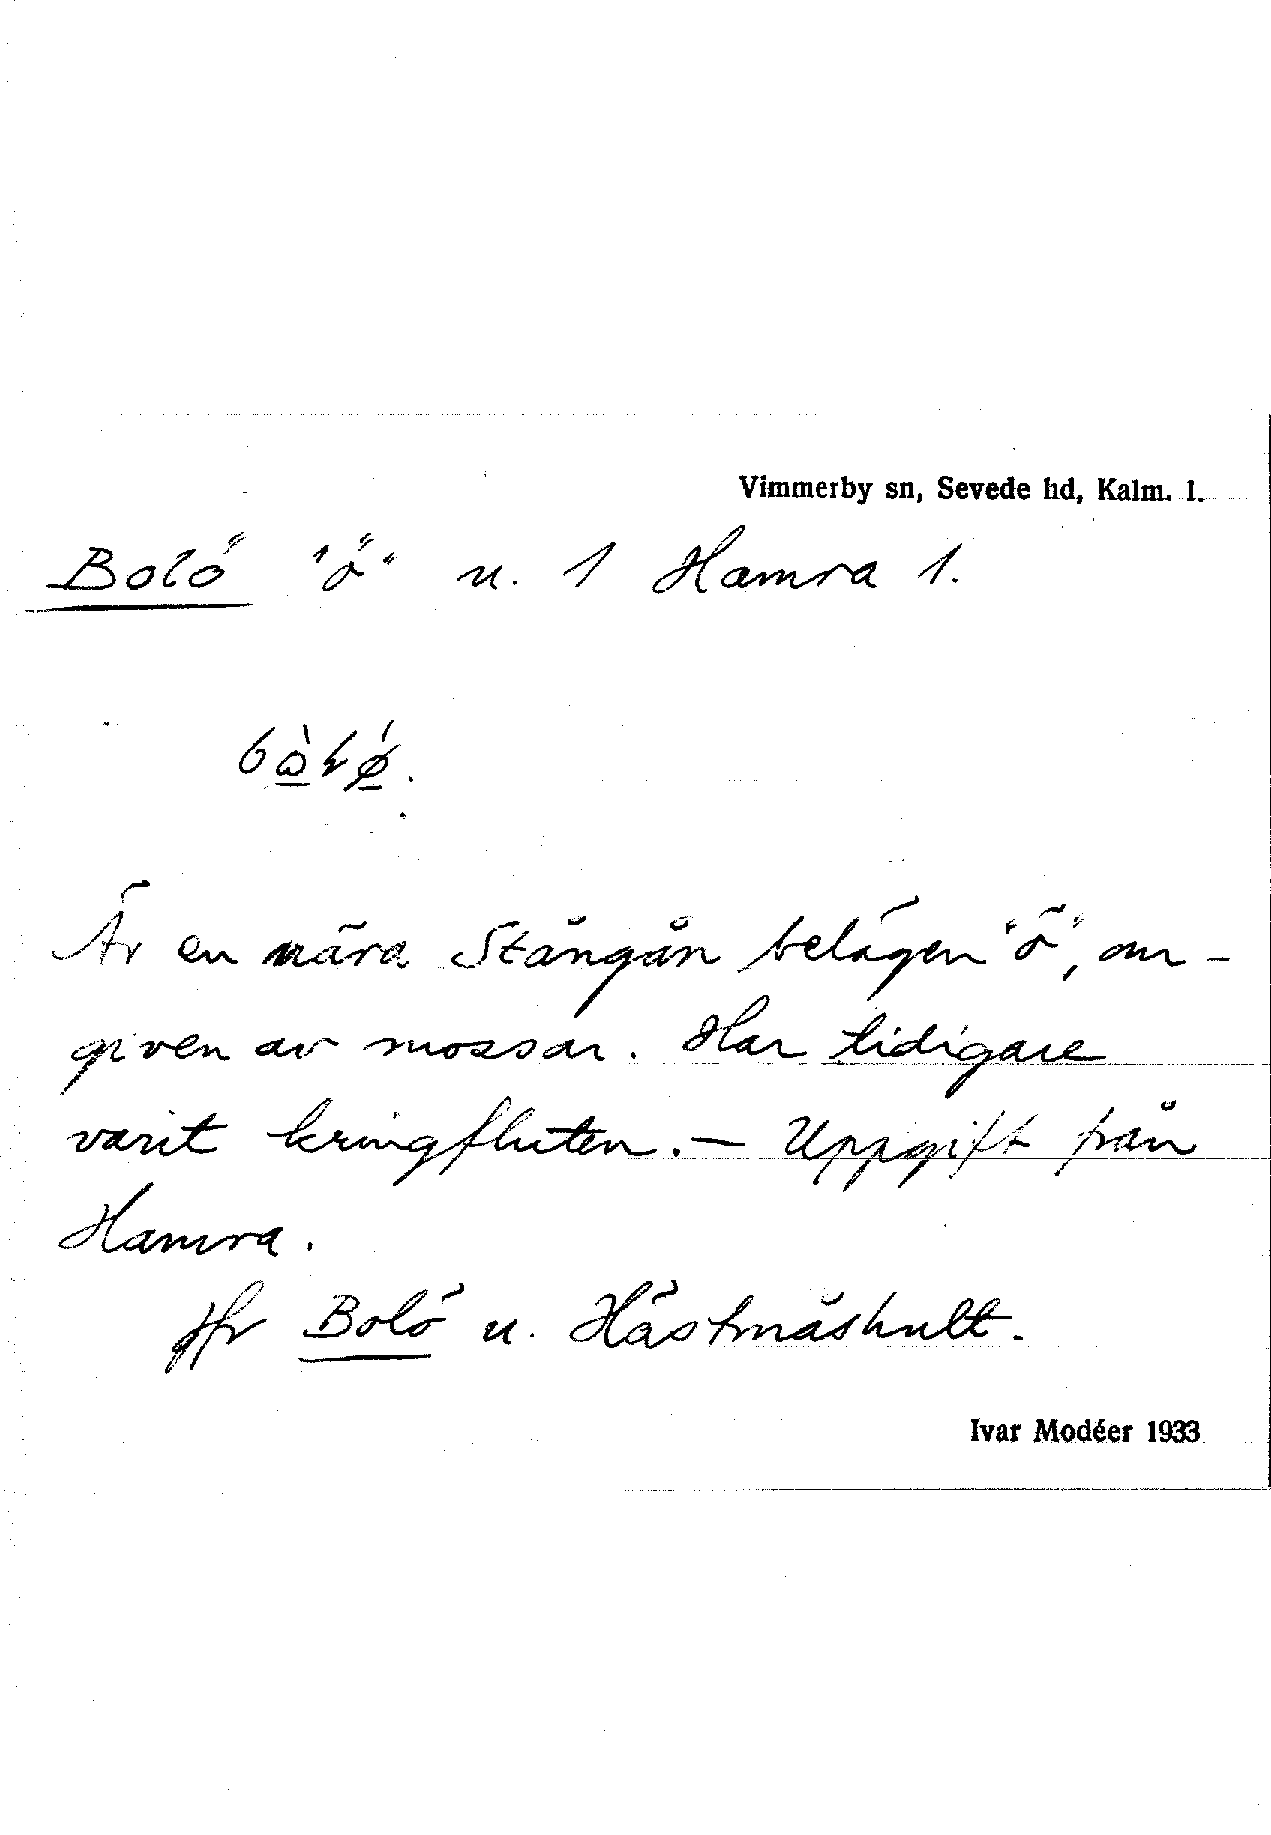 Vimmerby sn, Sevede hd, Kalm. l.
Bolö "ö" u. 1 Hamra 1.
Är en nära Stångån belägen "ö", om-
given av mossar. Har tidigare
varit kringfluten. — Uppgift från
Hamra.
Jfr Bolö u. Hästmåshult.
Ivar Modéer 1933